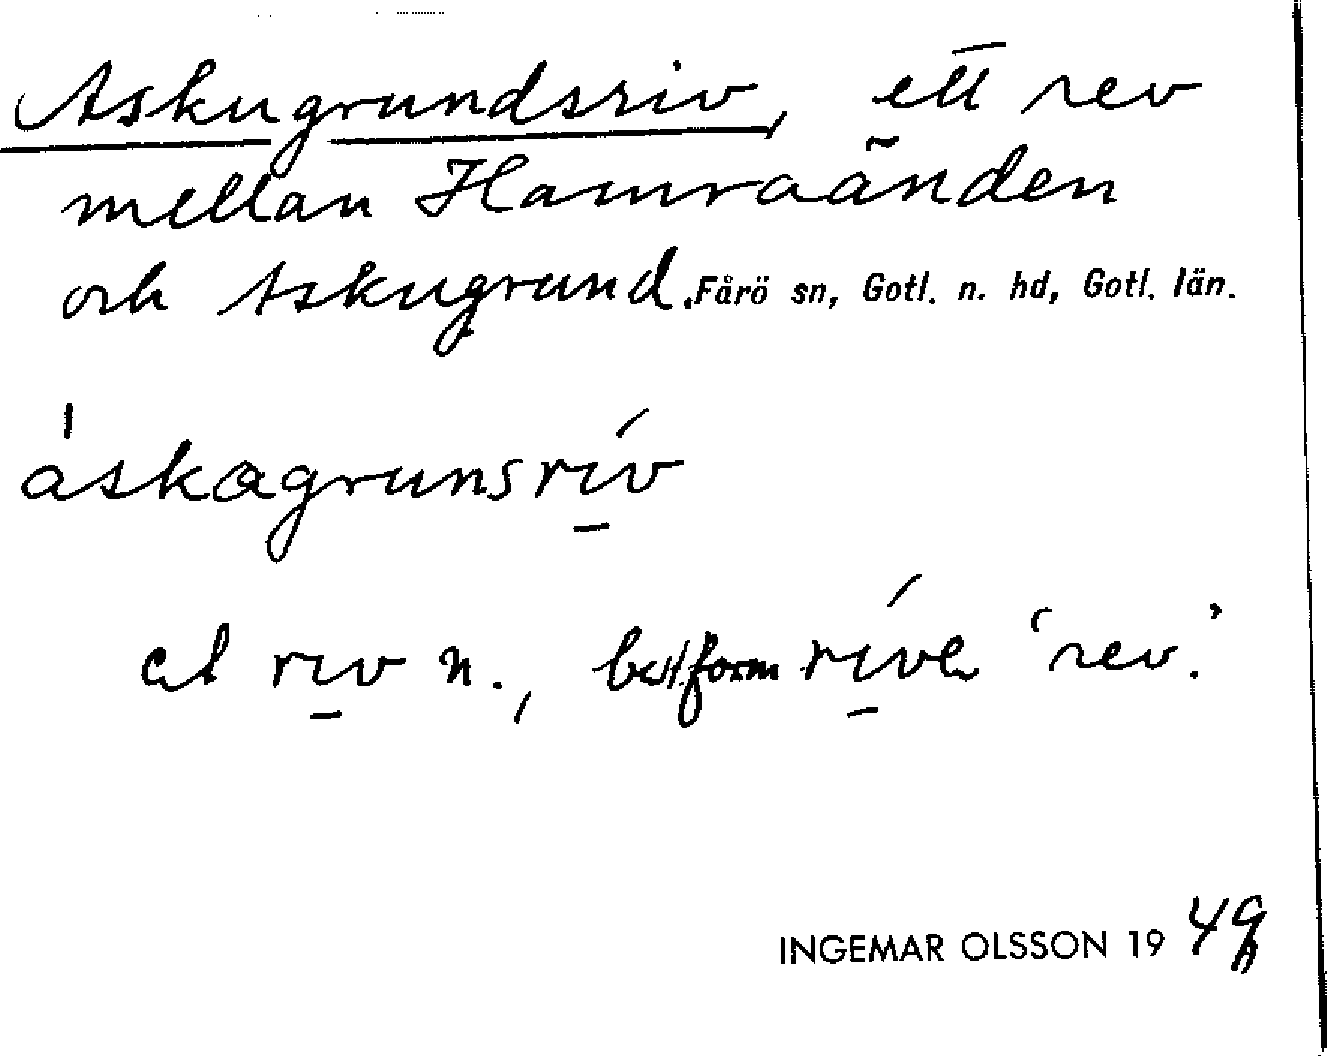 Askugrundsriv, ett rev
mellan Hamraänden
och Askugrund. Fårö sn, Gotl. n. hd, Gotl. län.
áskagrunsrív
et riv n., best. form ríve 'rev.'
INGEMAR OLSSON 1949